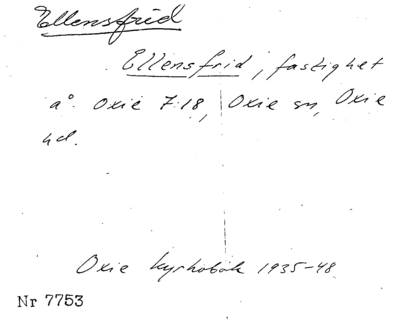 Ellensfrid
Ellensfrid, fastighet
å Oxie 7:18, Oxie sn, Oxie
hd.
Oxie kyrkobok 1935-48
Nr 7753